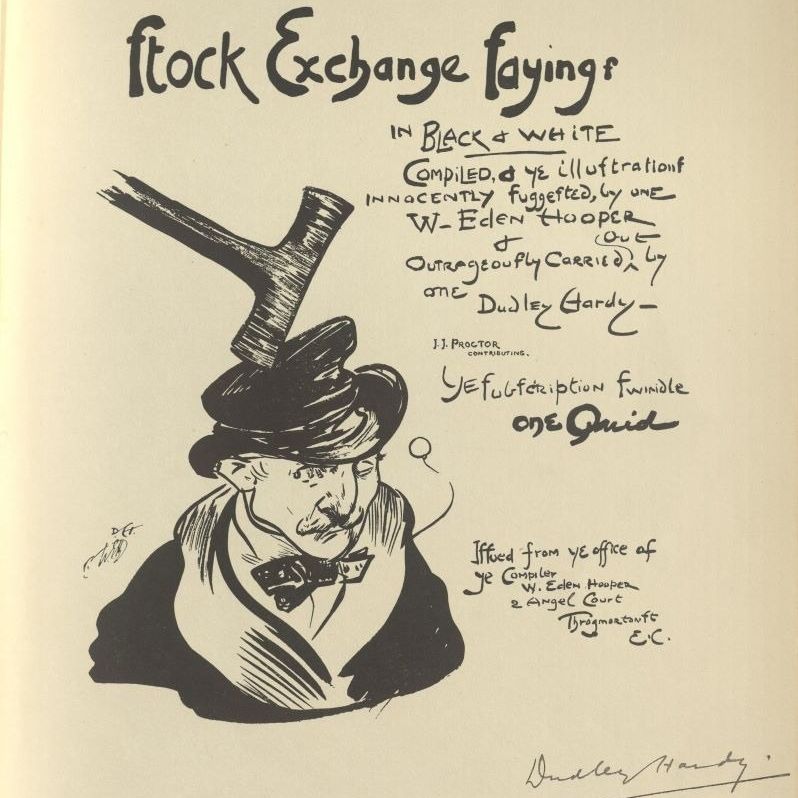 ſtock Exchange ſayingſ
IN BLACK & WHITE
COMPILED, & YE illuſtrationſ
INNOCENTLY ſuggeſted, by ONE
W- Eden HOOPER
&
out
Outrageouſly Carried ‸ by
one
Dudley Hardy —
J.J. PROCTOR
CONTRIBUTING.
Ye ſubſcription ſwindle
one Quid
Iſſued from ye office of
ye Compiler
W. Eden Hooper
2 Angel Court
Throgmorton ſt
E.C.
Dudley Hardy.